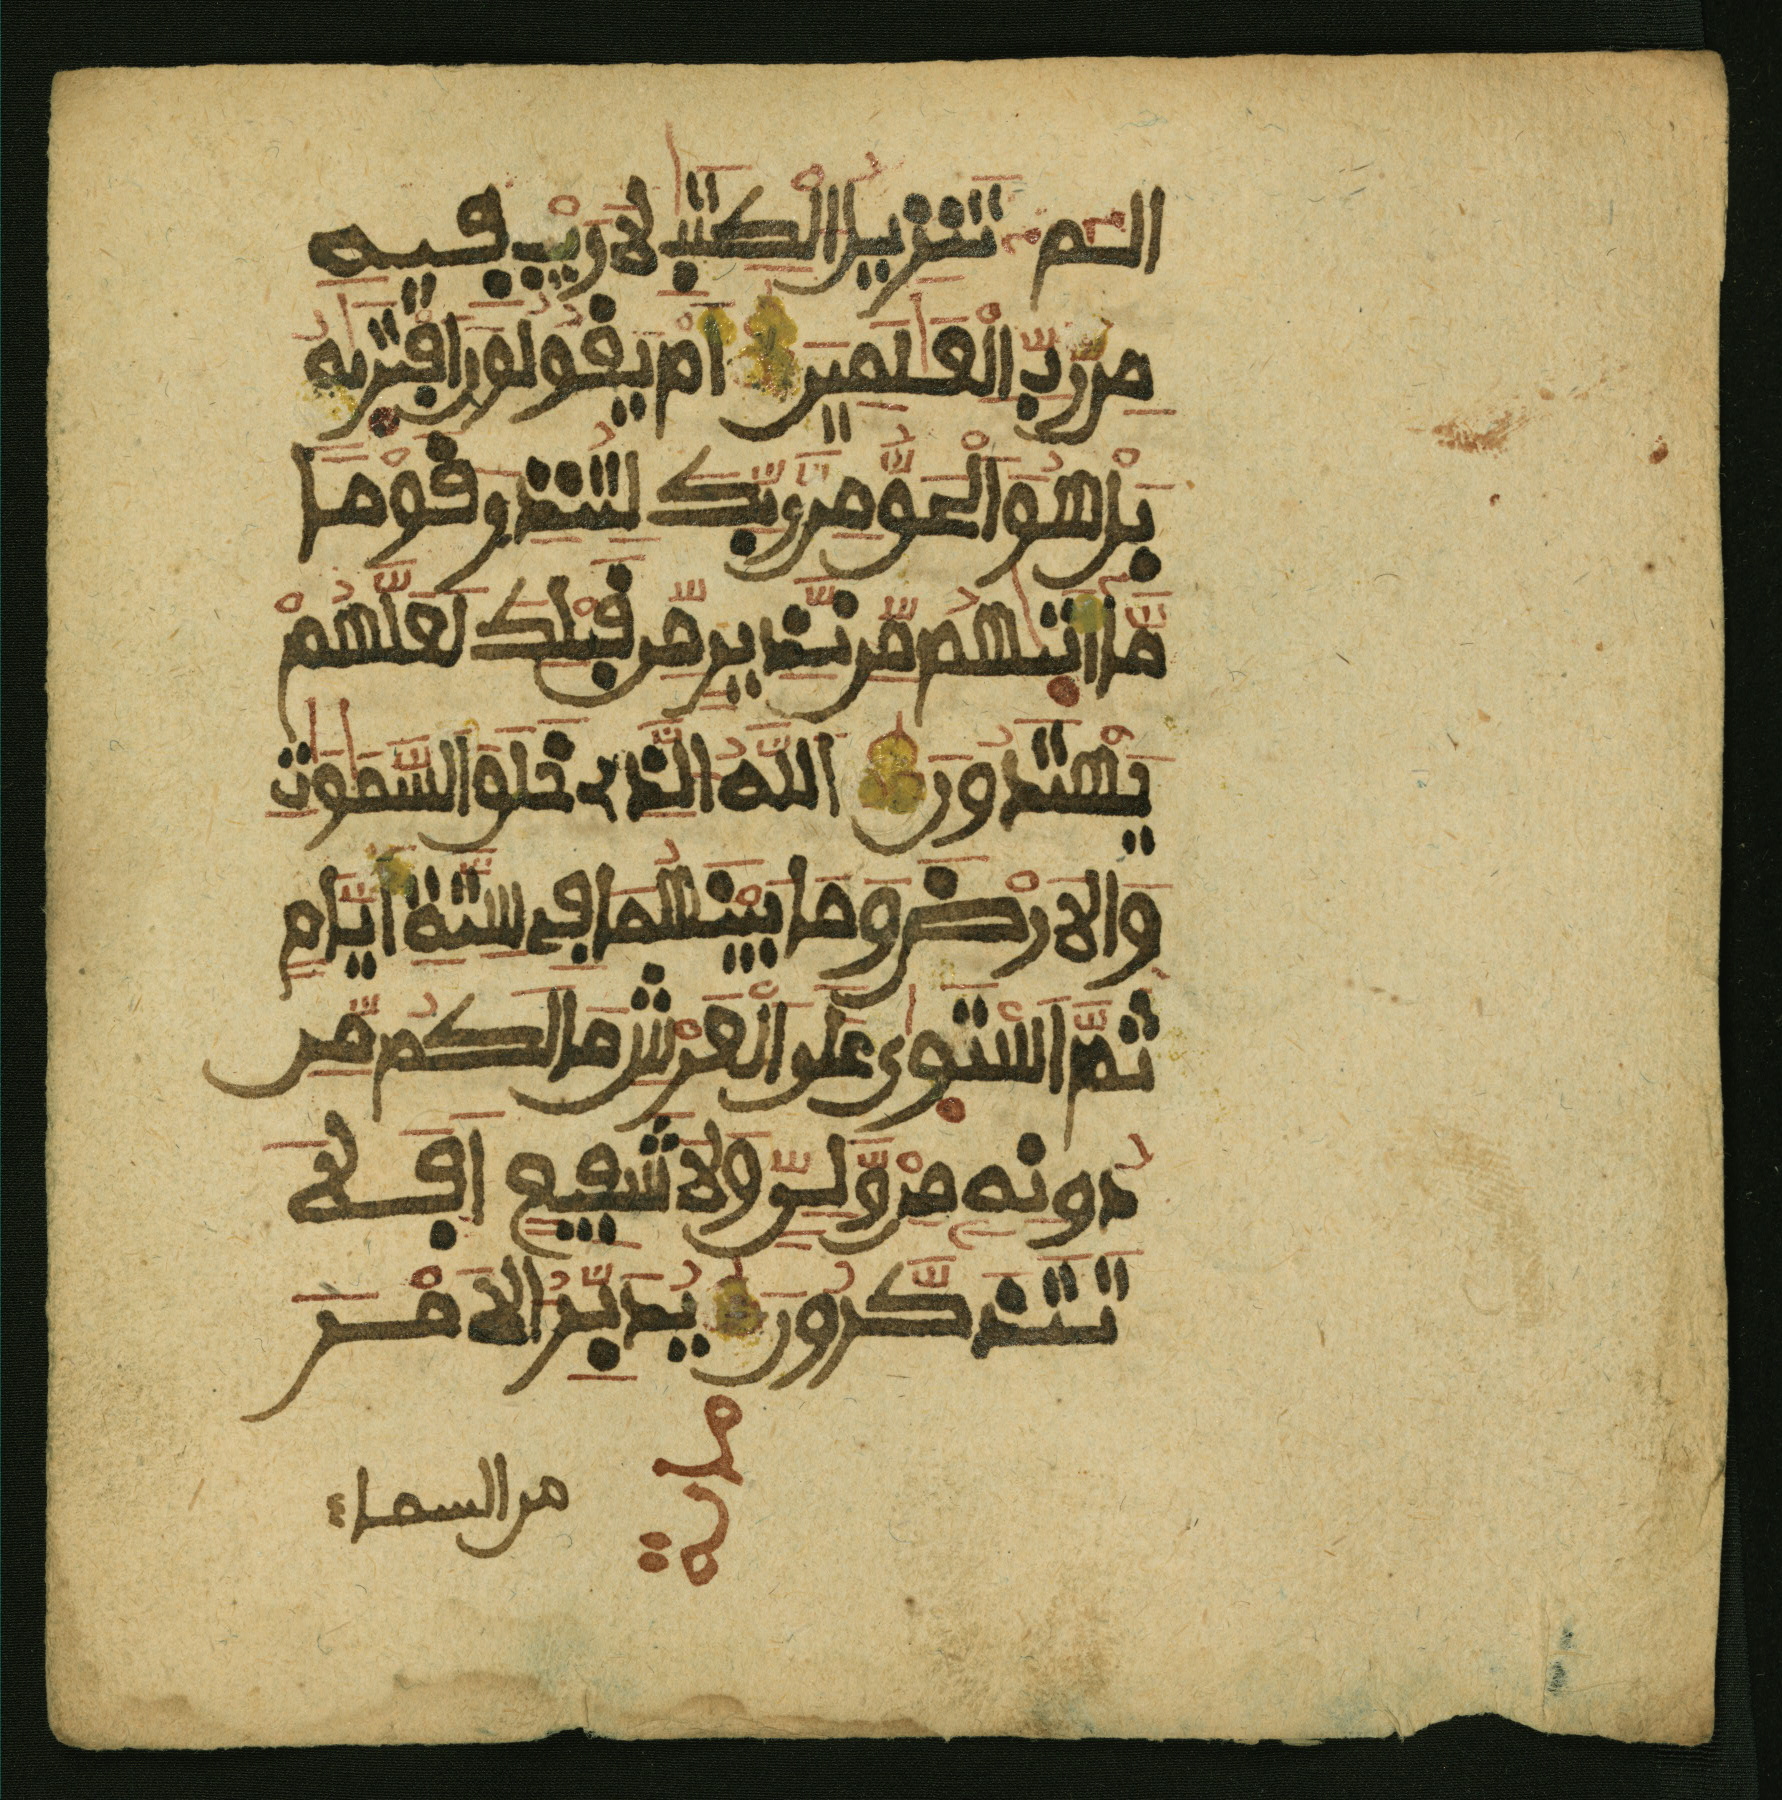 الم تَنزِيلُ الْكِتَٰبِ لَا رَيْبَ فِيهِ
مِن رَّبِّ الْعَٰلَمِينَ أَمْ يَقُولُونَ افْتَرَىٰهُ
بَلْ هُوَ الْحَقُّ مِن رَّبِّكَ لِتُنذِرَ قَوْمًا
مَّا أَتَىٰهُم مِّن نَّذِيرٍ مِّن قَبْلِكَ لَعَلَّهُمْ
يَهْتَدُونَ اللَّهُ الَّذِي خَلَقَ السَّمَٰوَٰتِ
وَالَارْضَ وَمَا بَيْنَهُمَا فِي سِتَّةِ أَيَّامٍ
ثُمَّ اسْتَوَىٰ عَلَى الْعَرْشِ مَا لَكُم مِّن
دُونِهِ مِنْ وَّلِيٍّ وَلَا شَفِيعٍ أَفَلَا
تَتَذَكَّرُونَ يُدَبِّرُ الَامْرَ
من السماء